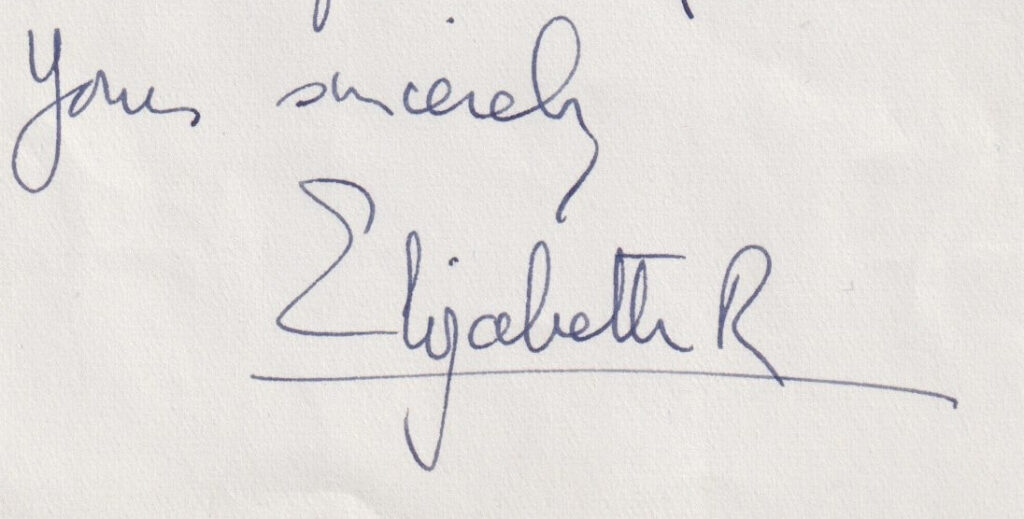 Yours sincerely
Elizabeth R